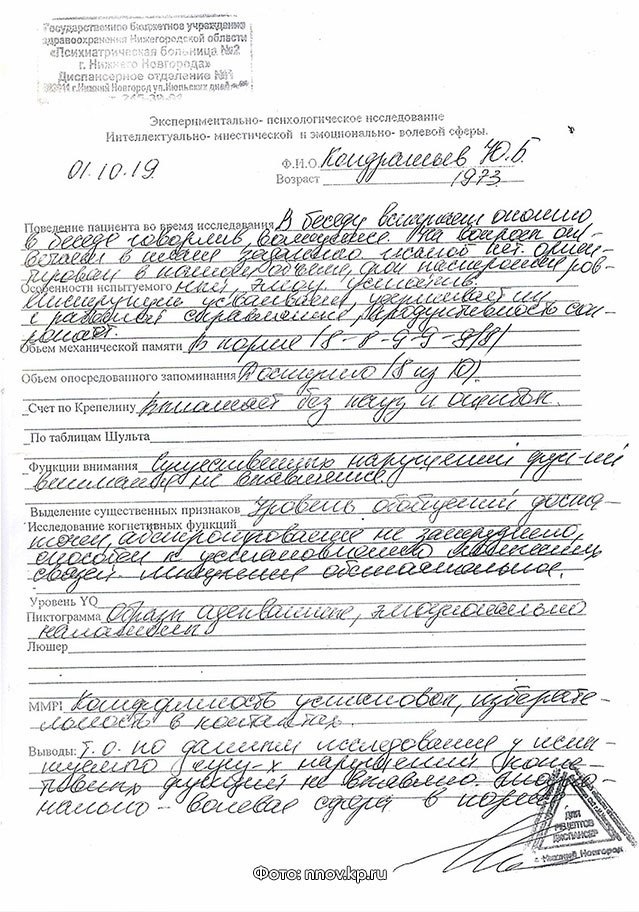 Государственное бюджетное учреждение
здравоохранения Нижегородской области
«Психиатрическая больница №2
г. Нижнего Новгорода»
Диспансерное отделение №1
г.Нижний Новгород ул.Июльских дней
Экспериментально- психологическое исследование
Интеллектуально- мнестической и эмоционально- волевой сферы.
01.10.19
Ф.И.О. Кондрашов Ю.Б
Возраст 1973
Поведение пациента во время исследования В беседу вступает охотно
в беседе говорлив, На вопросы от-
вечает в плане заданного нет. ориен-
тирован в фон настроения ров-
Особенности испытуемого ный, эмоц. устойчив.
Инструкции усваивает, удерживает
с работой справляется, продуктивность сох-
раняет.
Объем механической памяти В норме (8-8-9-9-9/8)
Объем опосредованного запоминания Доступно (8 из 10).
Счет по Крепелину выполняет без пауз и ошибок.
По таблицам Шульта
Функции внимания Существенных нарушений функций
внимания не выявлено
Выделение существенных признаков Уровень обобщений доста-
Исследование когнитивных функций
точен, абстрагирование не затруднено,
способен к установлению логических
связей. Мышление обстоятельное.
Уровень YQ
Пиктограмма Образы адекватные, эмоционально
наполнены
Люшер
MMPI Конформность установок, избирате-
льность в контактах.
Выводы: Т.о. по данным исследования у испы-
туемого сущ-х нарушений когни-
тивных функций не выявлено. Эмоцио-
нально- волевая сфера в норме
ДЛЯ
РЕЦЕПТОВ
ДИСПАНСЕР
г. Нижний Новгород
Фото: nnov.kp.ru